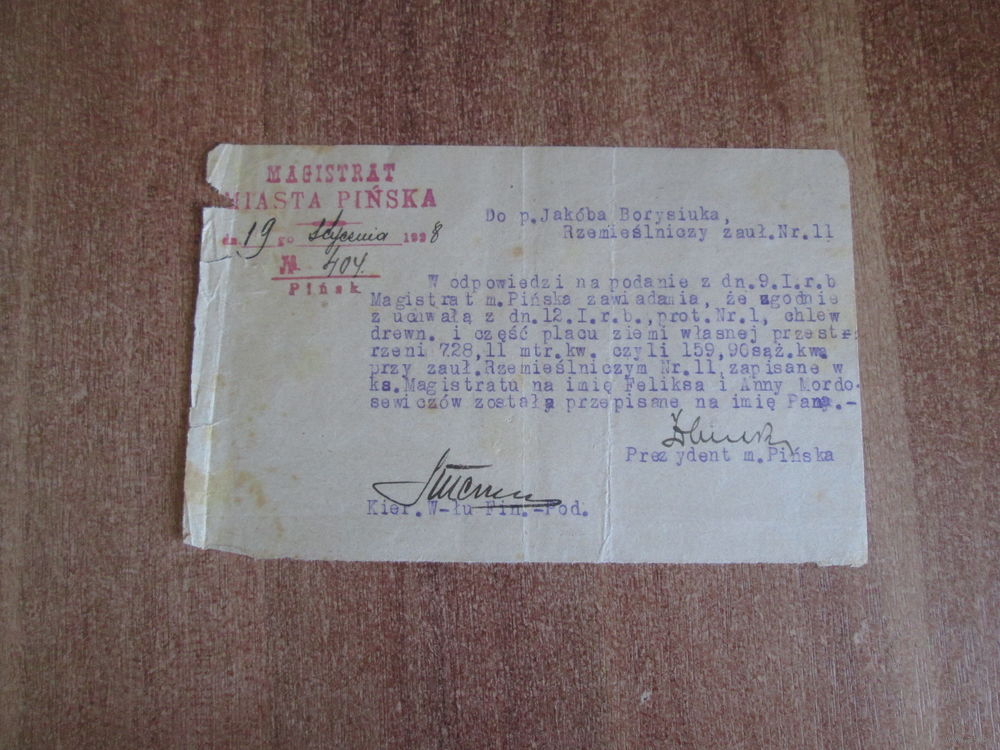 MAGISTRAT
MIASTA PIŃSKA
dn. 19 go stycznia 1928
№ 404
Pińsk
Do p.Jakóba Borysiuka,
Rzemieślniczy zauł.Nr.11
W odpowiedzi na podanie z dn.9.I.r.b
Magistrat m.Pińska zawiadamia, że zgodnie
z uchwałą z dn.12.I.r.b.,prot.Nr.1, chlew
drewn. i część placu ziemi własnej przest-
rzeni 728,11 mtr.kw. czyli 159,90sąż.kw.
przy zauł.Rzemieślniczym Nr.11,zapisane w
ks.Magistratu na imię Feliksa i Anny Mordo-
sewiczów została przepisane na imię Pana.-
Prezydent m.Pińska
Kier.W-łu Fin.-Pod.